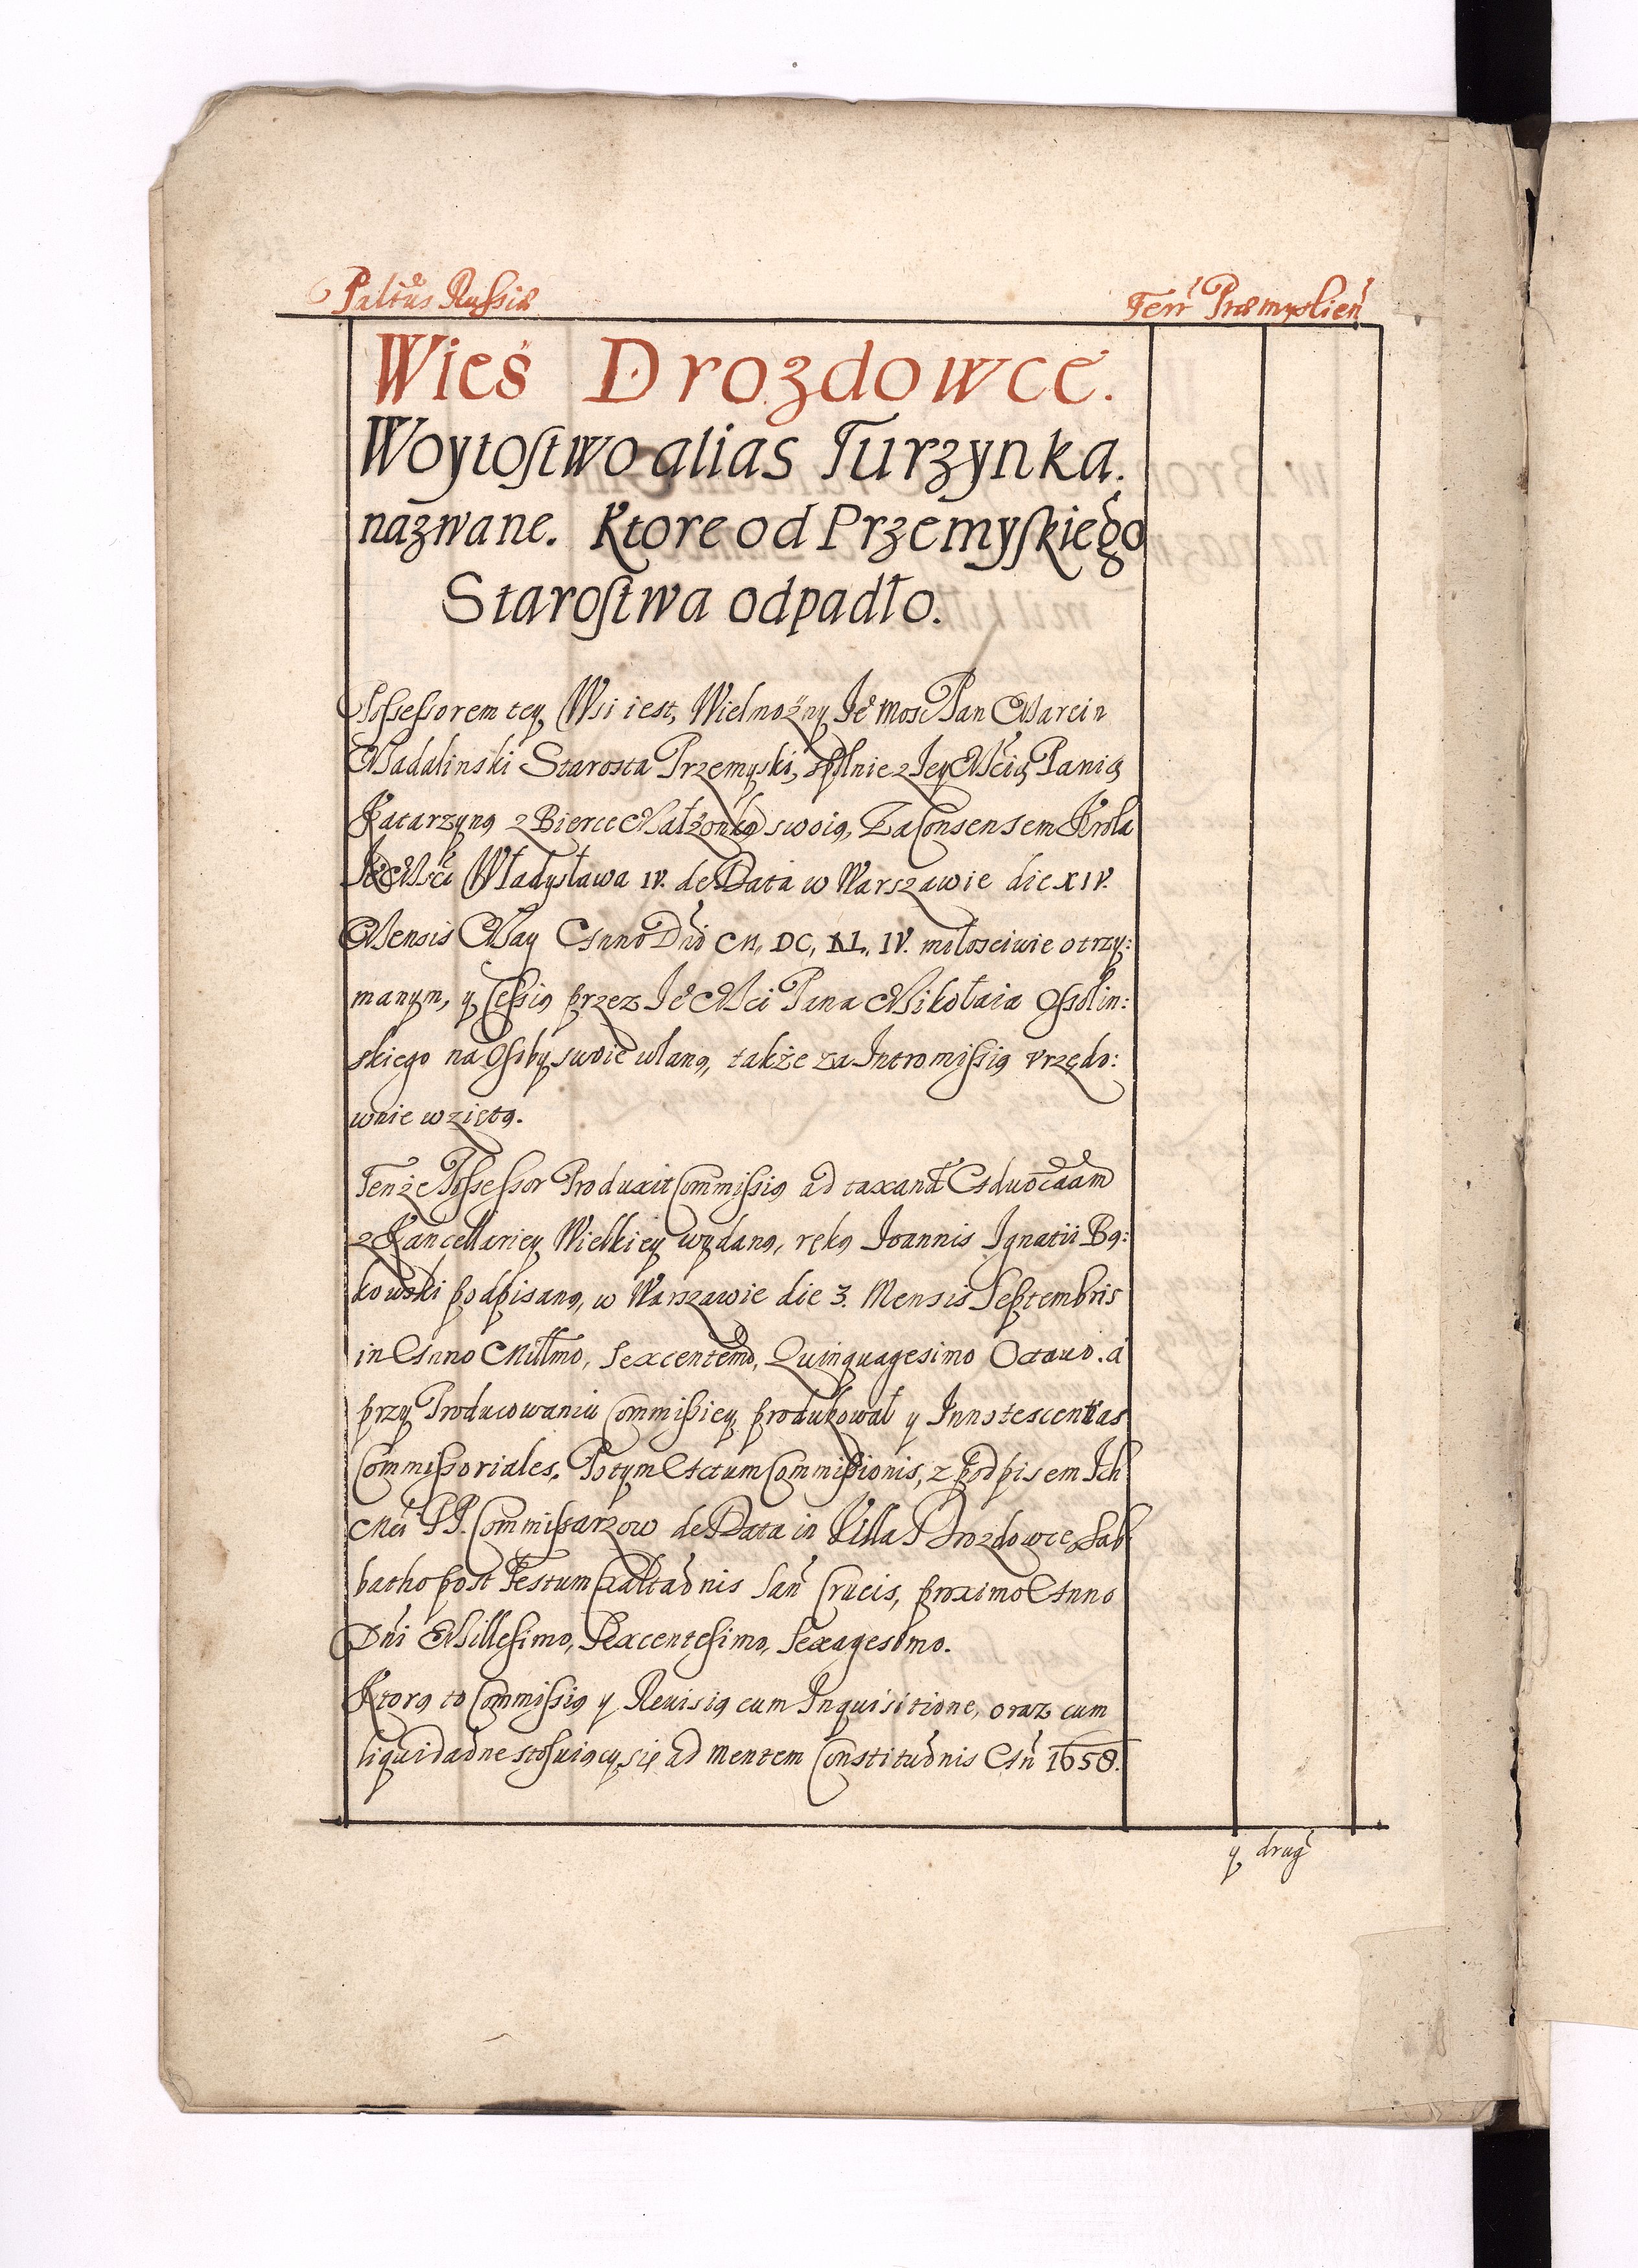 Palt͠us Russiæ
Terr̃ Præmyslień
Wieś Drozdowce.
Woytostwo alias Turzynka.
názwane. Ktore od Przemyskiego
Starostwa odpadło.
Possessorem tey Wsi iest, Wielmożny Je͠ Mość Pan Marcin
Madalinski Starosta Przemyski, spolnie z Jey Mcią Panią
Katarzyną z Bierce Małżonką swoią, Za Consensem Krola
Je͠ Mści Władysława IV. de Data w Warszawie die XIV.
Mensis May Anno Dńi M. DC, XL, IV. miłosciwie otrzy:
manym, y Cessią przez Je͠ Mci Pana Mikołaia Ossolin:
skiego na Osoby swoie wlaną, także za Intromissią vrzędo:
wnie wziętą.
Tenże Possessor Produxit Commissią ad taxand͠ Aduoc͠aam
z Kancellariey Wielkiey wydaną, ręką Joannis Ignatii Bą:
kowski podpisaną, w Warszawie die 3. Mensis Septembris
in Anno Mill͠mo, Sexcentemo͠, Quinquagesimo Octauo. á
przy Producowaniu Commissiey produkował y Innotescentias
Commissoriales. Potym Actum Commissionis, z podpisem Ich
Mci PP. Commissarzow de Data in Villa Drozdowce, Sab
batho post Festum Exaltao͠nis San̄ Crucis, proximo Anno
Dńi Millesimo, Sexcentesimo, Sexagesimo.
Ktorą to Commissią y Reuisią cum Inquisitione, oraz cum
liquidao͠ne stosuiący się ad mentem Constituo͠nis An̄ 1658.
y drug̃